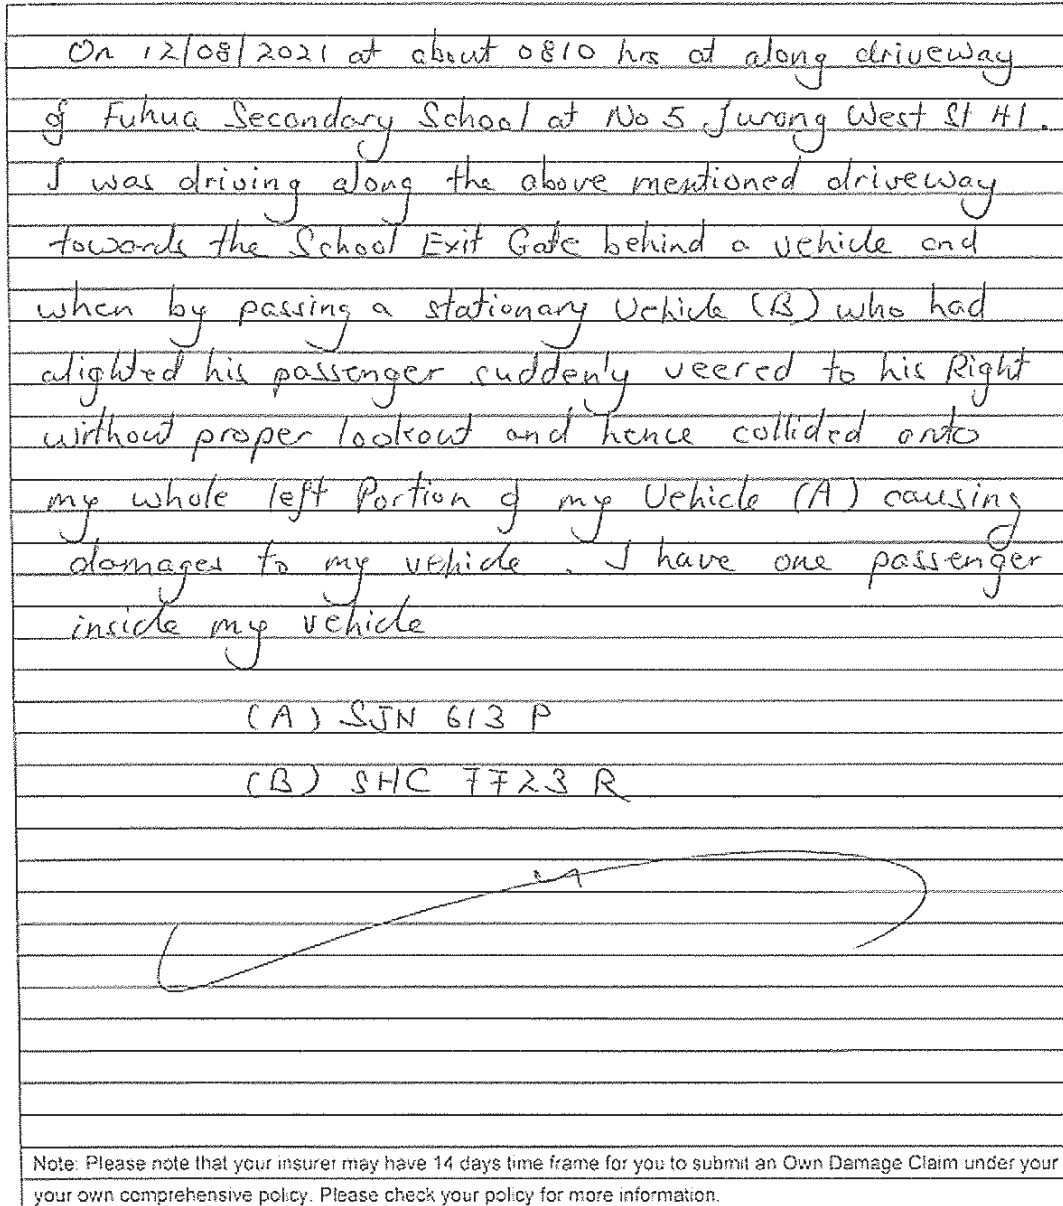 On 12/08/2021 at about 0810 hrs at along driveway
of Fuhua Secondary School at No 5 Jurong West St 41.
I was driving along the above mentioned driveway
towards the School Exit Gate behind a vehicle and
when by passing a stationary Vehicle (B) who had
alighted his passenger suddenly veered to his Right
without proper lookout and hence collided onto
my whole left Portion of my Vehicle (A) causing
damages to my vehicle. I have one passenger
inside my vehicle
(A) SJN 613 P
(B) SHC 7723 R
Note: Please note that your insurer may have 14 days time frame for you to submit an Own Damage Claim under your
your own comprehensive policy. Please check your policy for more information.